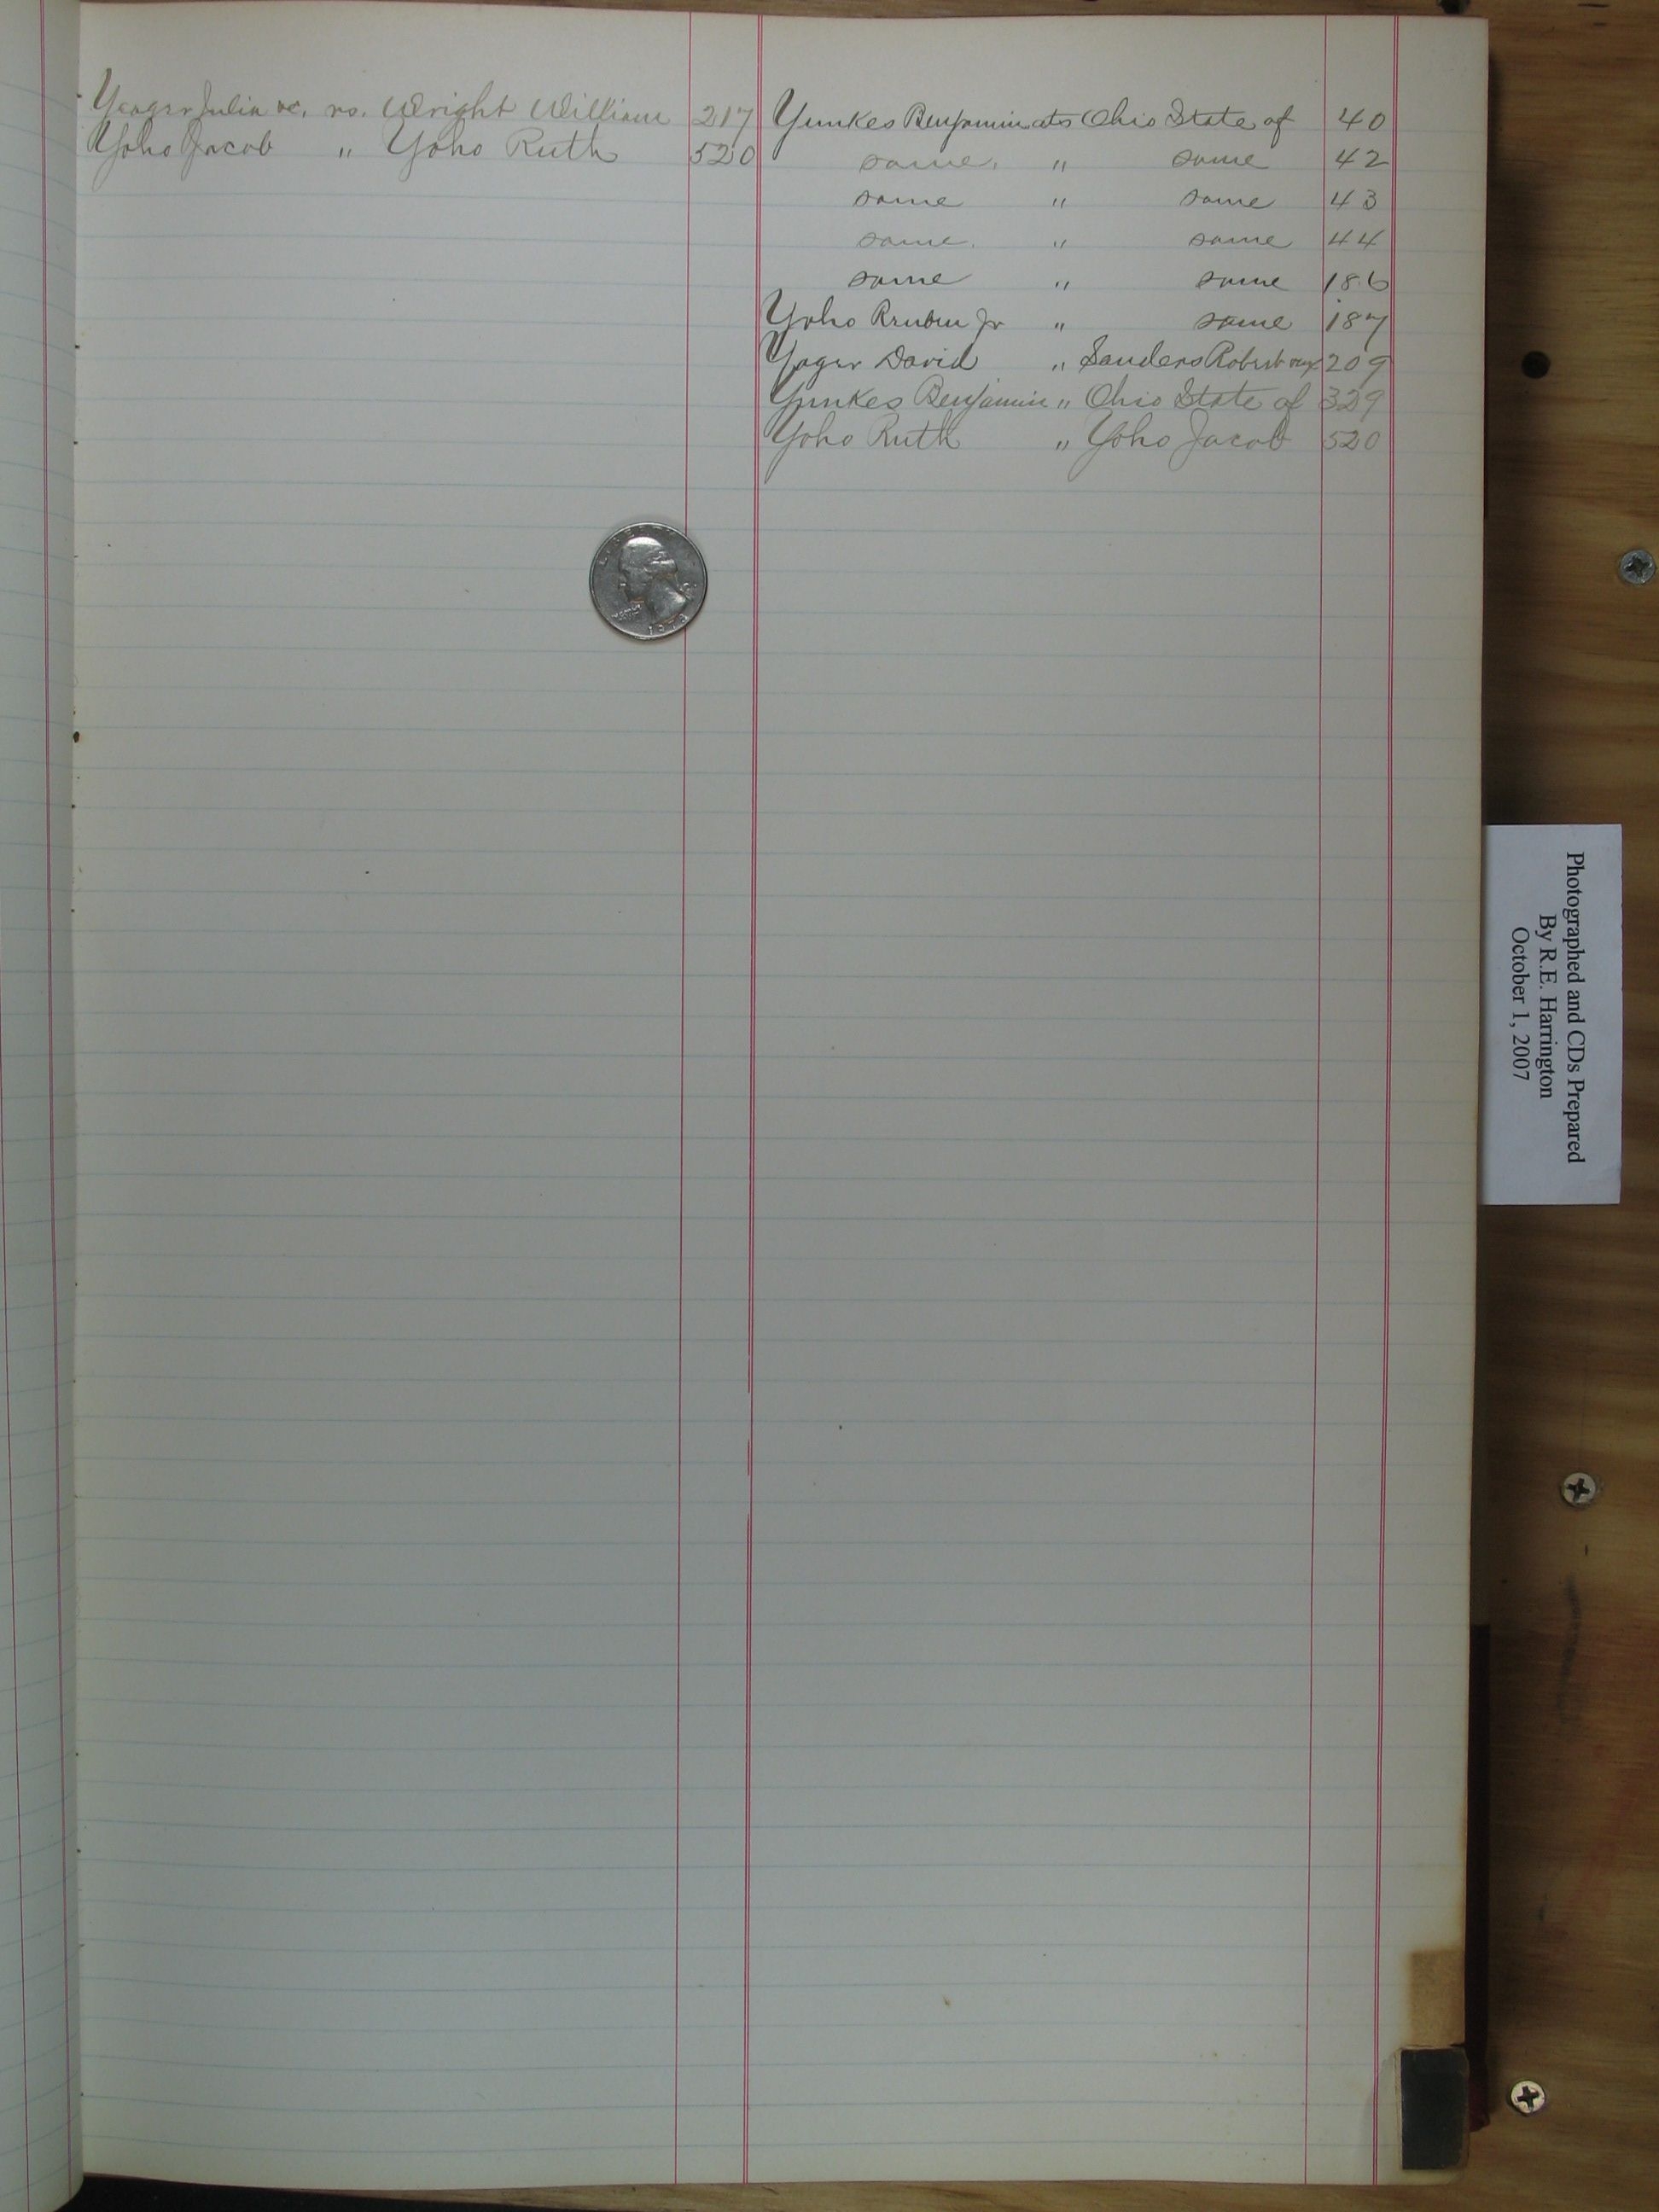 Yeager Julia &c. vs. Wright William 217
Yoho Jacob " Yoho Ruth 520
Yunkes Benjamin ats Ohio State of 40
same. " same 42
same " same 43
same. " same 44
same " same 186
Yoho Reuben Jr " same 187
Yager David " Sanders Robert 209
Yunkes Benjamin " Ohio State of 329
Yoho Ruth " Yoho Jacob 520
LIBERTY
Photographed and CDs Prepared
By R.E. Harrington
October 1, 2007